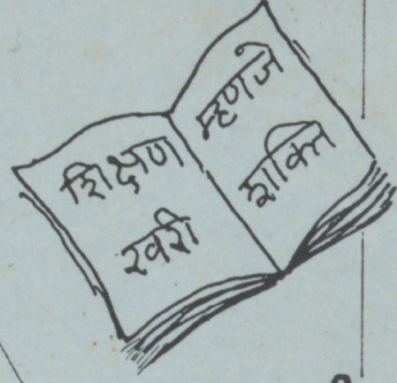 शिक्षण
खरी
म्हणजे
शक्ति